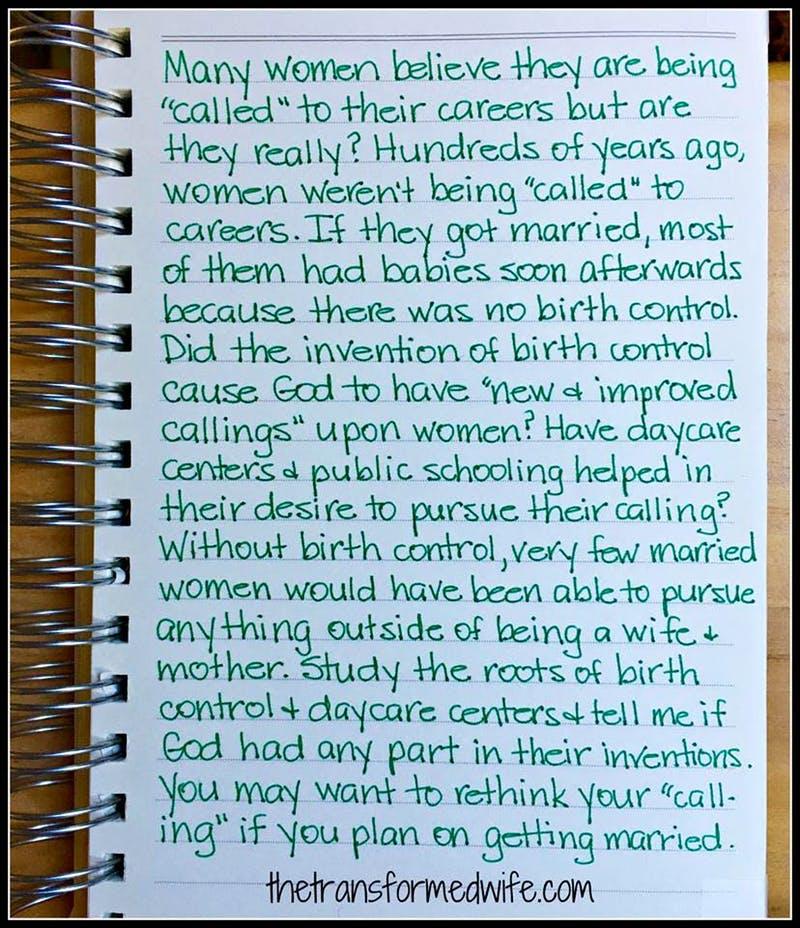 Many women believe they are being
"called" to their careers but are
they really? Hundreds of years ago,
women weren't being "called" to
careers. If they got married, most
of them had babies soon afterwards
because there was no birth control.
Did the invention of birth control
cause God to have "new & improved
callings" upon women? Have daycare
centers & public schooling helped in
their desire to pursue their calling?
Without birth control, very few married
women would have been able to pursue
anything outside of being a wife &
mother. Study the roots of birth
control & daycare centers & tell me if
God had any part in their inventions.
You may want to rethink your "call-
ing" if you plan on getting married.
thetransformedwife.com